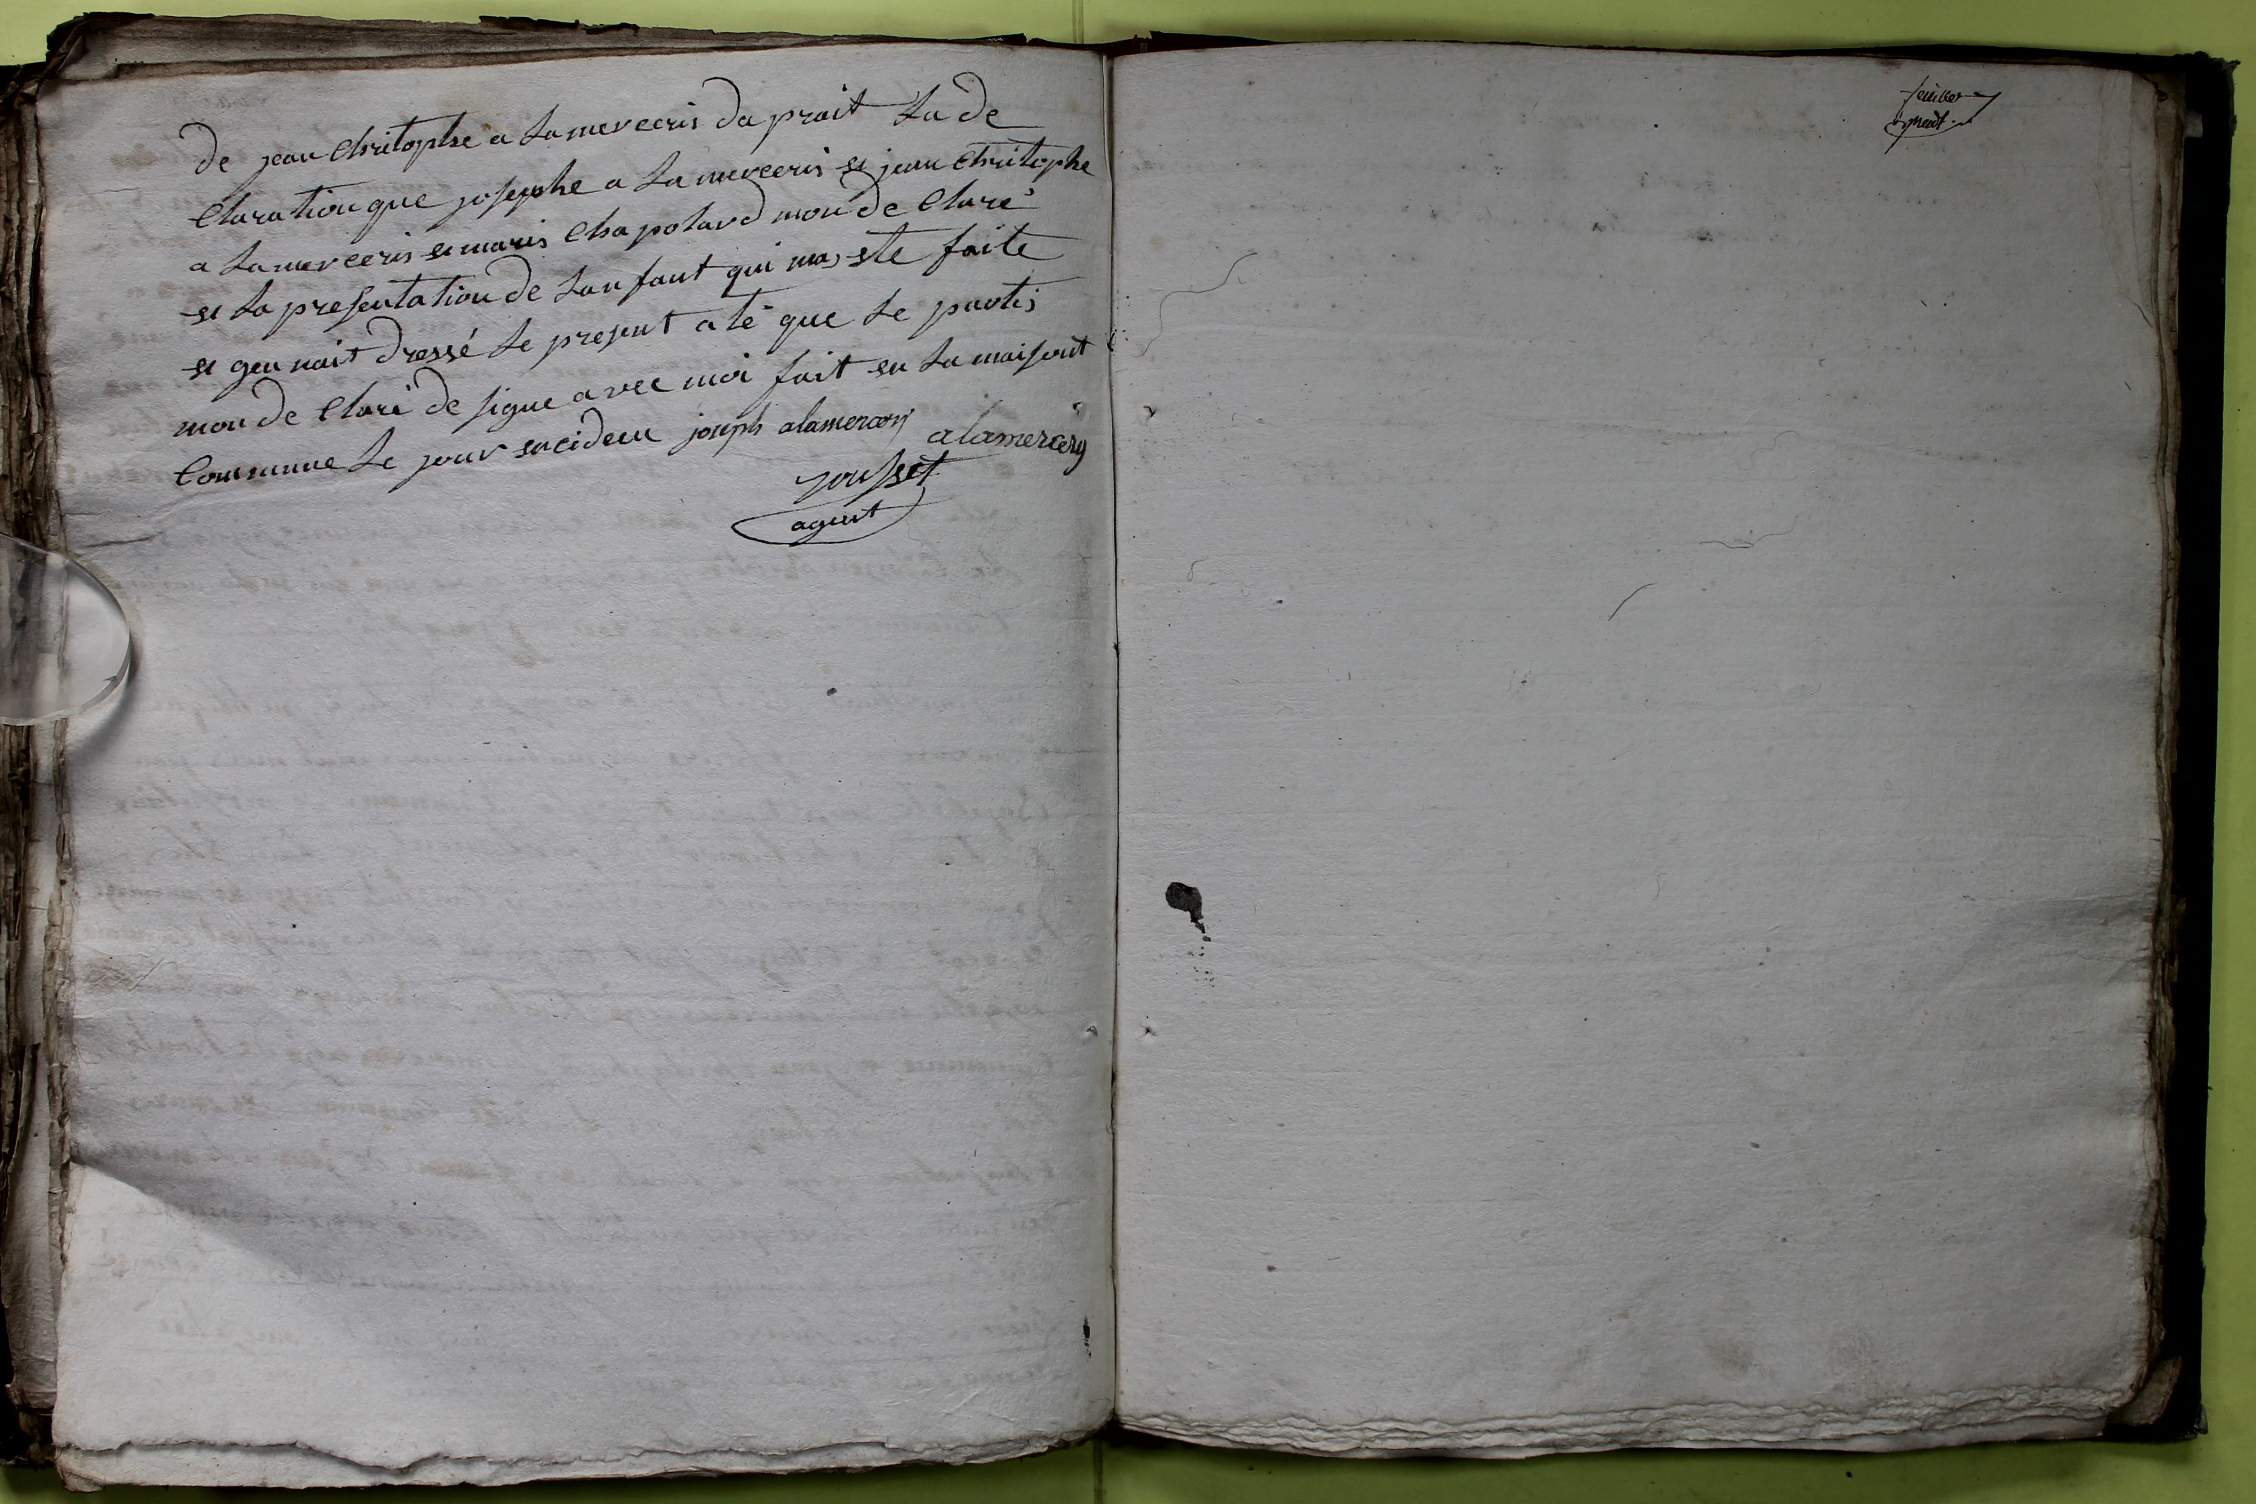 de jean Chritophe a La merceris da prait La de
Claration que josephe a La merceris et jean Chritophe
a La merceris et maris Chapolard mon de Claré
et La presentation de Lanfant qui mas ete faite
et gen nait dressé Le present ate que Le partis
mon de Claré de signe avec moi fait en La maisont
Commune Le jour
joseph alamercery alamercery
jousset
agent